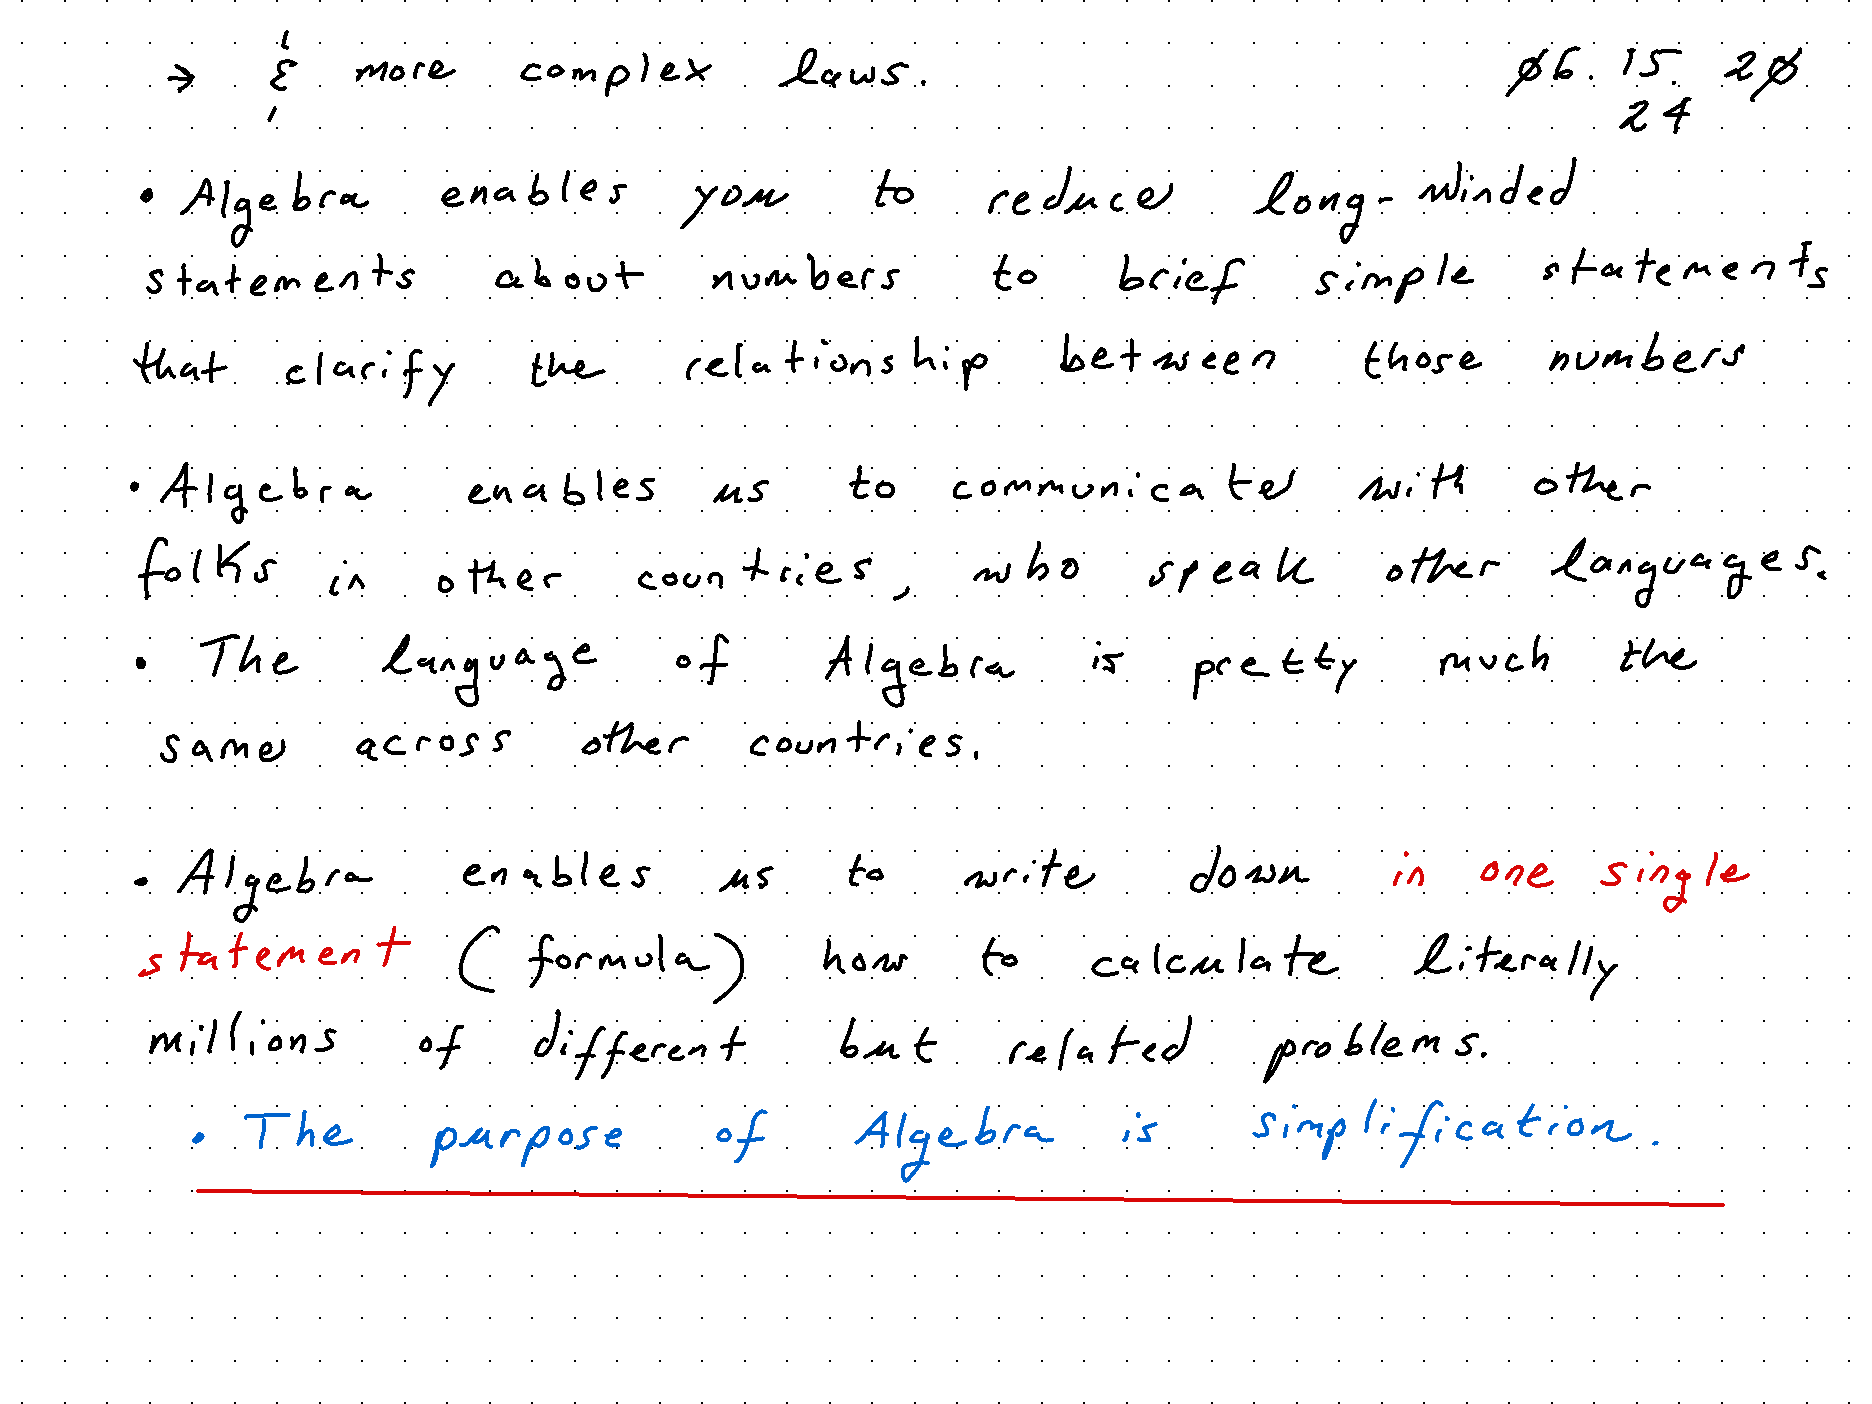 → & more complex laws. 06. 15. 20
24
• Algebra enables you to reduce long-winded
statements about numbers to brief simple statements
that clarify the relationship between those numbers
• Algebra enables us to communicate with other
folks in other countries, who speak other languages.
• The language of Algebra is pretty much the
same across other countries.
• Algebra enables us to write down in one single
statement (formula) how to calculate literally
millions of different but related problems.
• The purpose of Algebra is simplification.